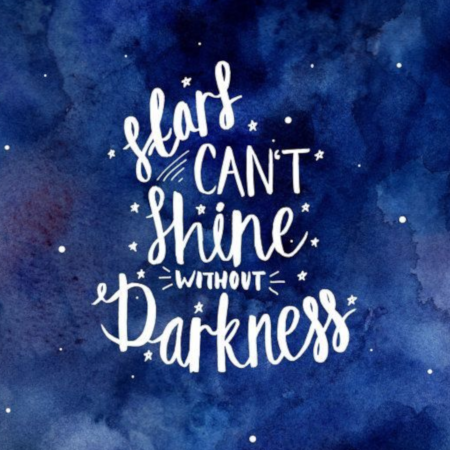 Stars
CAN'T
Shine
WITHOUT
Darkness